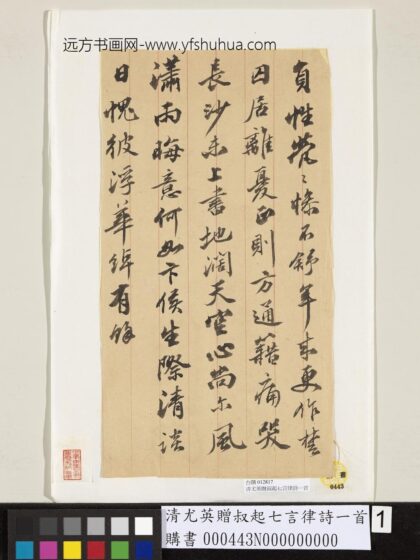 远方书画网-www.yfshuhua.com
負性煢〻慘不舒年來更作楚
囚居離憂正則方通籍痛哭
長沙未上書地濶天空心尚尓風
瀟雨晦意何如卞侯生際清談
日愧彼浮華綽有餘
0443
清尤英贈叔起七言律詩一首
清尤英贈叔起七言律詩一首
購書 000443N000000000
1